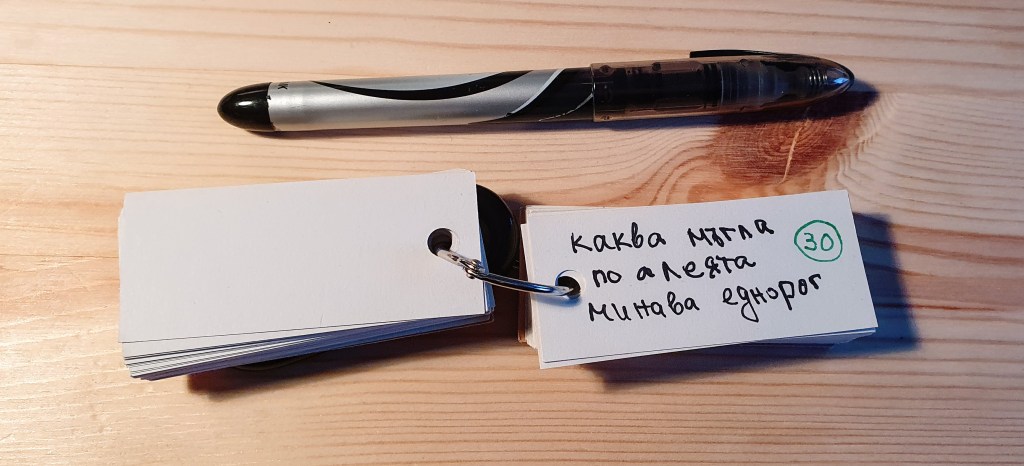 каква мъгла
по алеята
минава еднорог
30